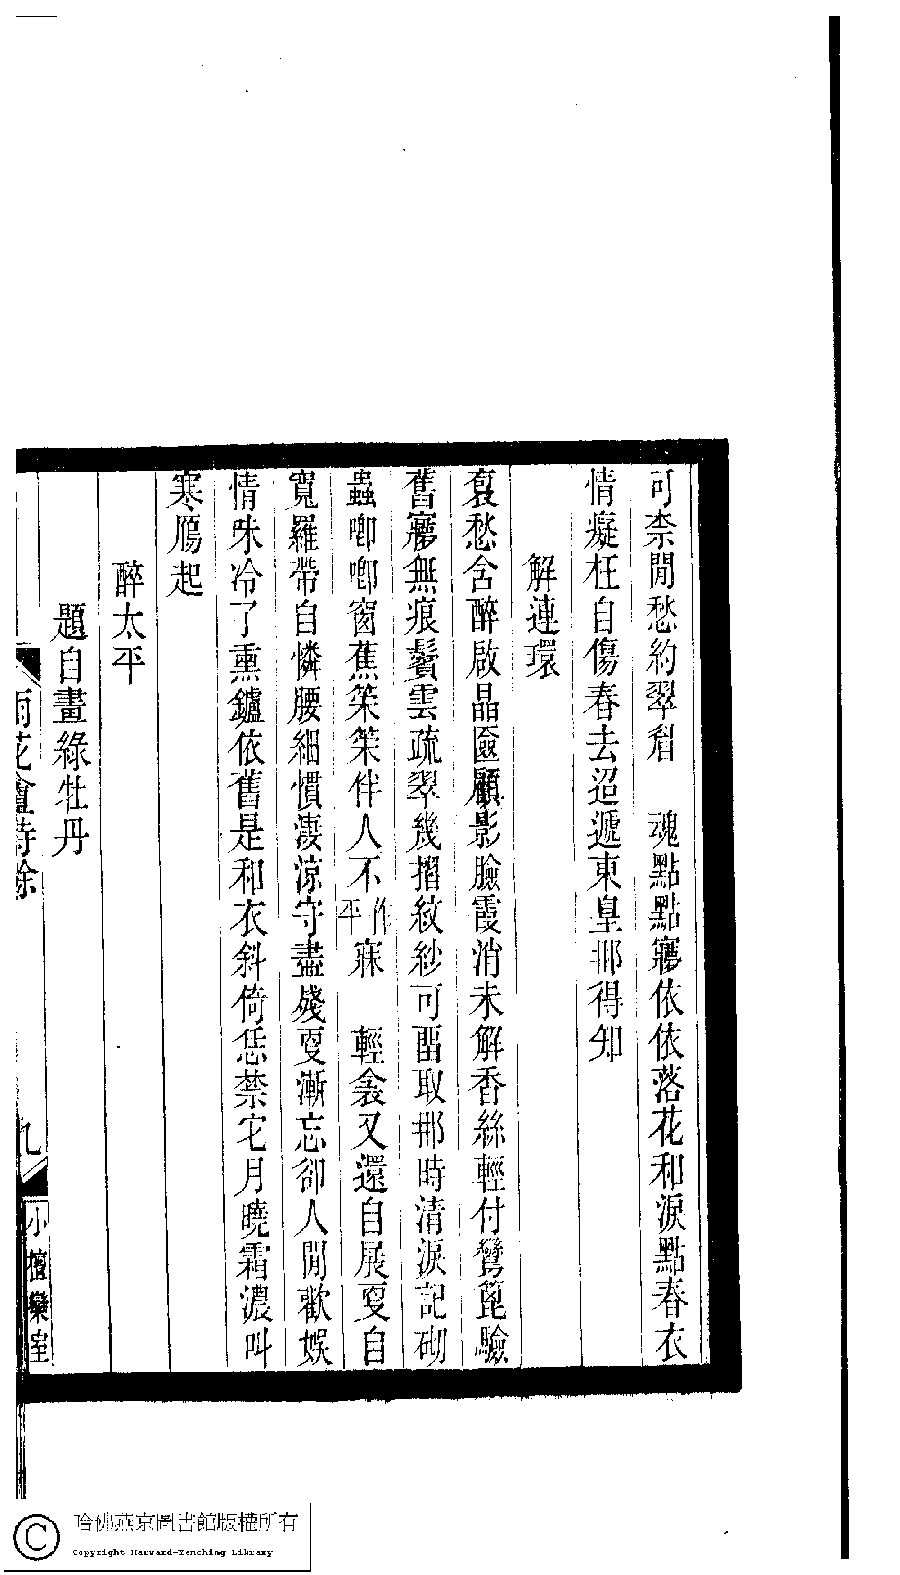 可柰閒愁約翠眉　魂點點寱依依落花和淚點春衣
情癡枉自傷春去迢遞東皇那得知
解連環
裒愁含醉啟晶匳顧影臉霞消未解香絲輕付鸞篦驗
舊寱無痕鬢雲疏翠幾摺紋紗可畱取那時清淚記砌
蟲唧唧窗蕉策策伴人不作平寐　輕衾又還自展叓自
寬羅帶自憐腰細慣淒涼守盡殘叓漸忘卻人閒歡娛
情味冷了熏鑪依舊是和衣斜倚恁禁宅月曉霜濃叫
寒鴈起
醉太平
題自畫綠牡丹
雨花盦詩餘
九
小檀欒室
哈佛燕京圖書館版權所有
Copyright Harvard-Yenching Library